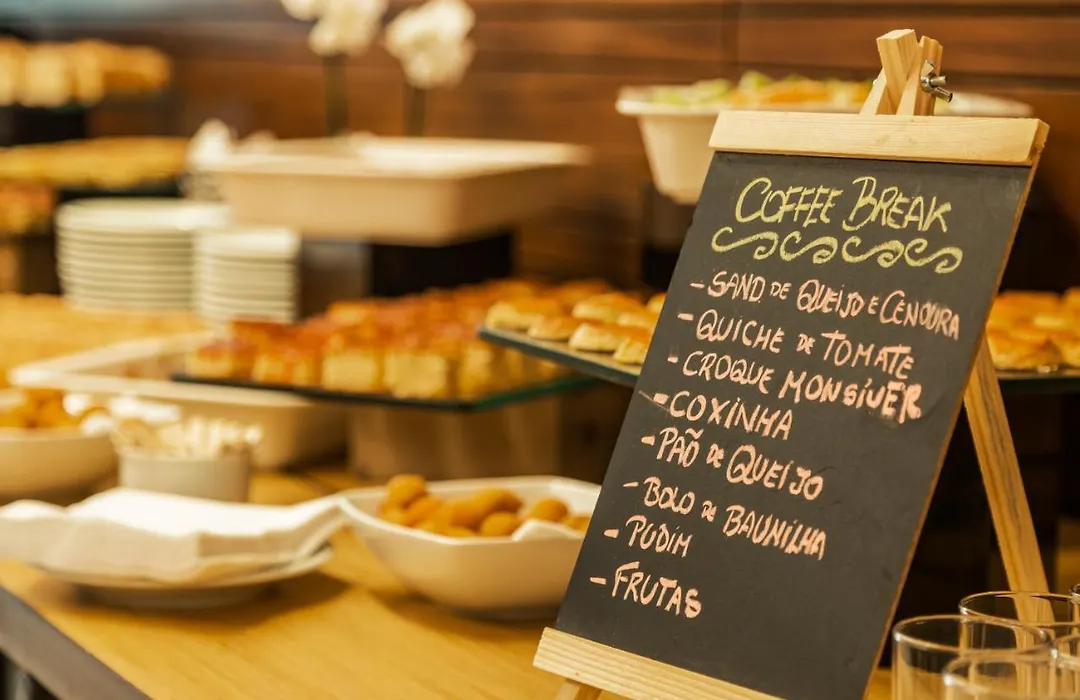 COFFEE BREAK
- SAND. DE QUEIJO E CENOURA
- QUICHE DE TOMATE
- CROQUE MONSIVER
- COXINHA
- PAÕ DE QUEIJO
- BOLO DE BAUNILHA
- PUDIM
- FRUTAS